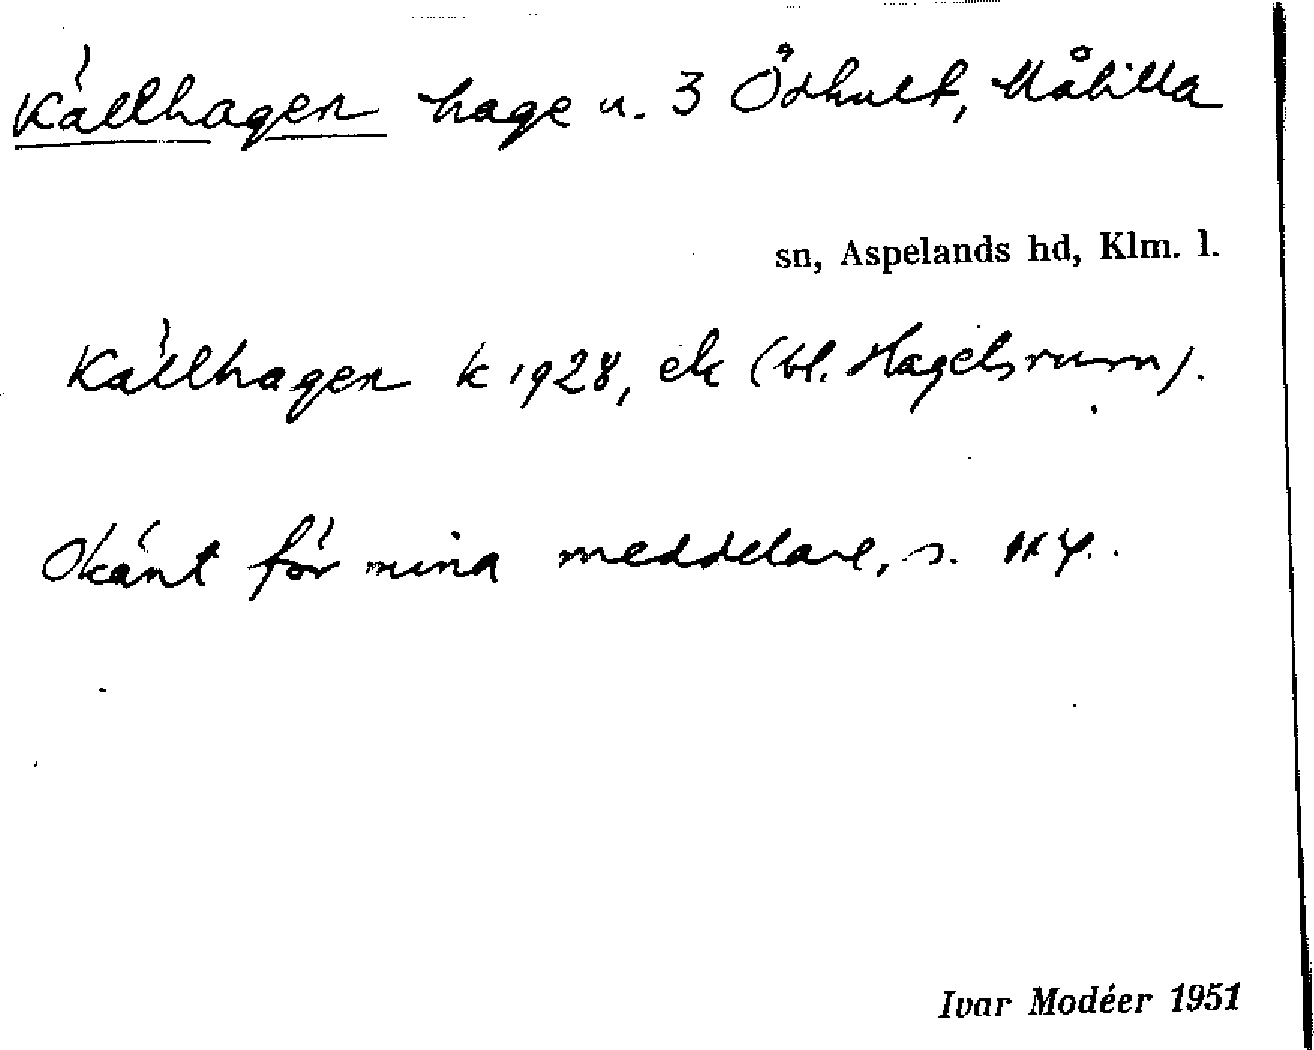 Källhagen hage u. 3 Ödhult, Målilla
sn, Aspelands hd, Klm. l.
Källhagen k 1928, ek (bl. Hagelsrum).
Okänt för mina meddelare, s.
Ivar Modéer 1951